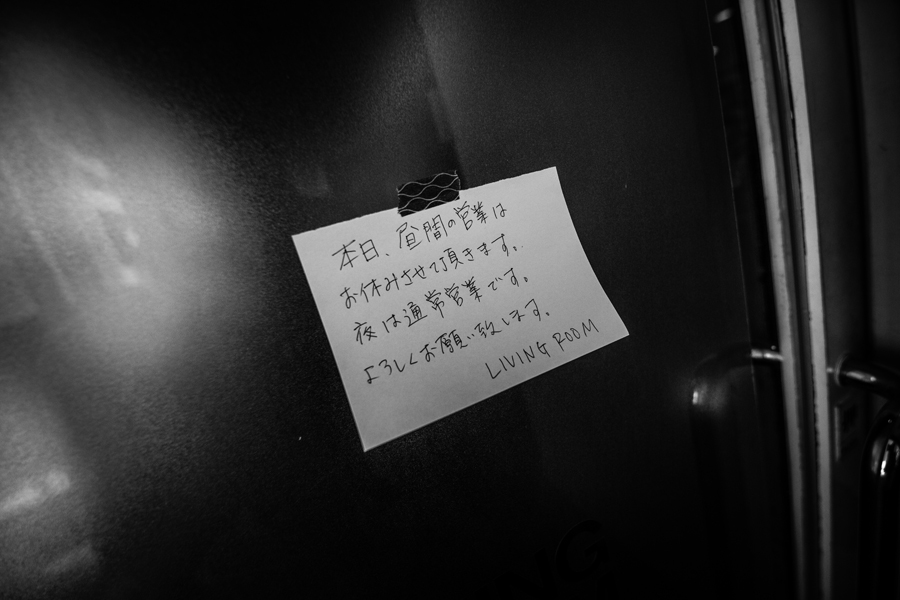 本日、昼間の営業は
お休みさせて頂きます。
夜は通常営業です。
よろしくお願い致します。
LIVING ROOM
NG